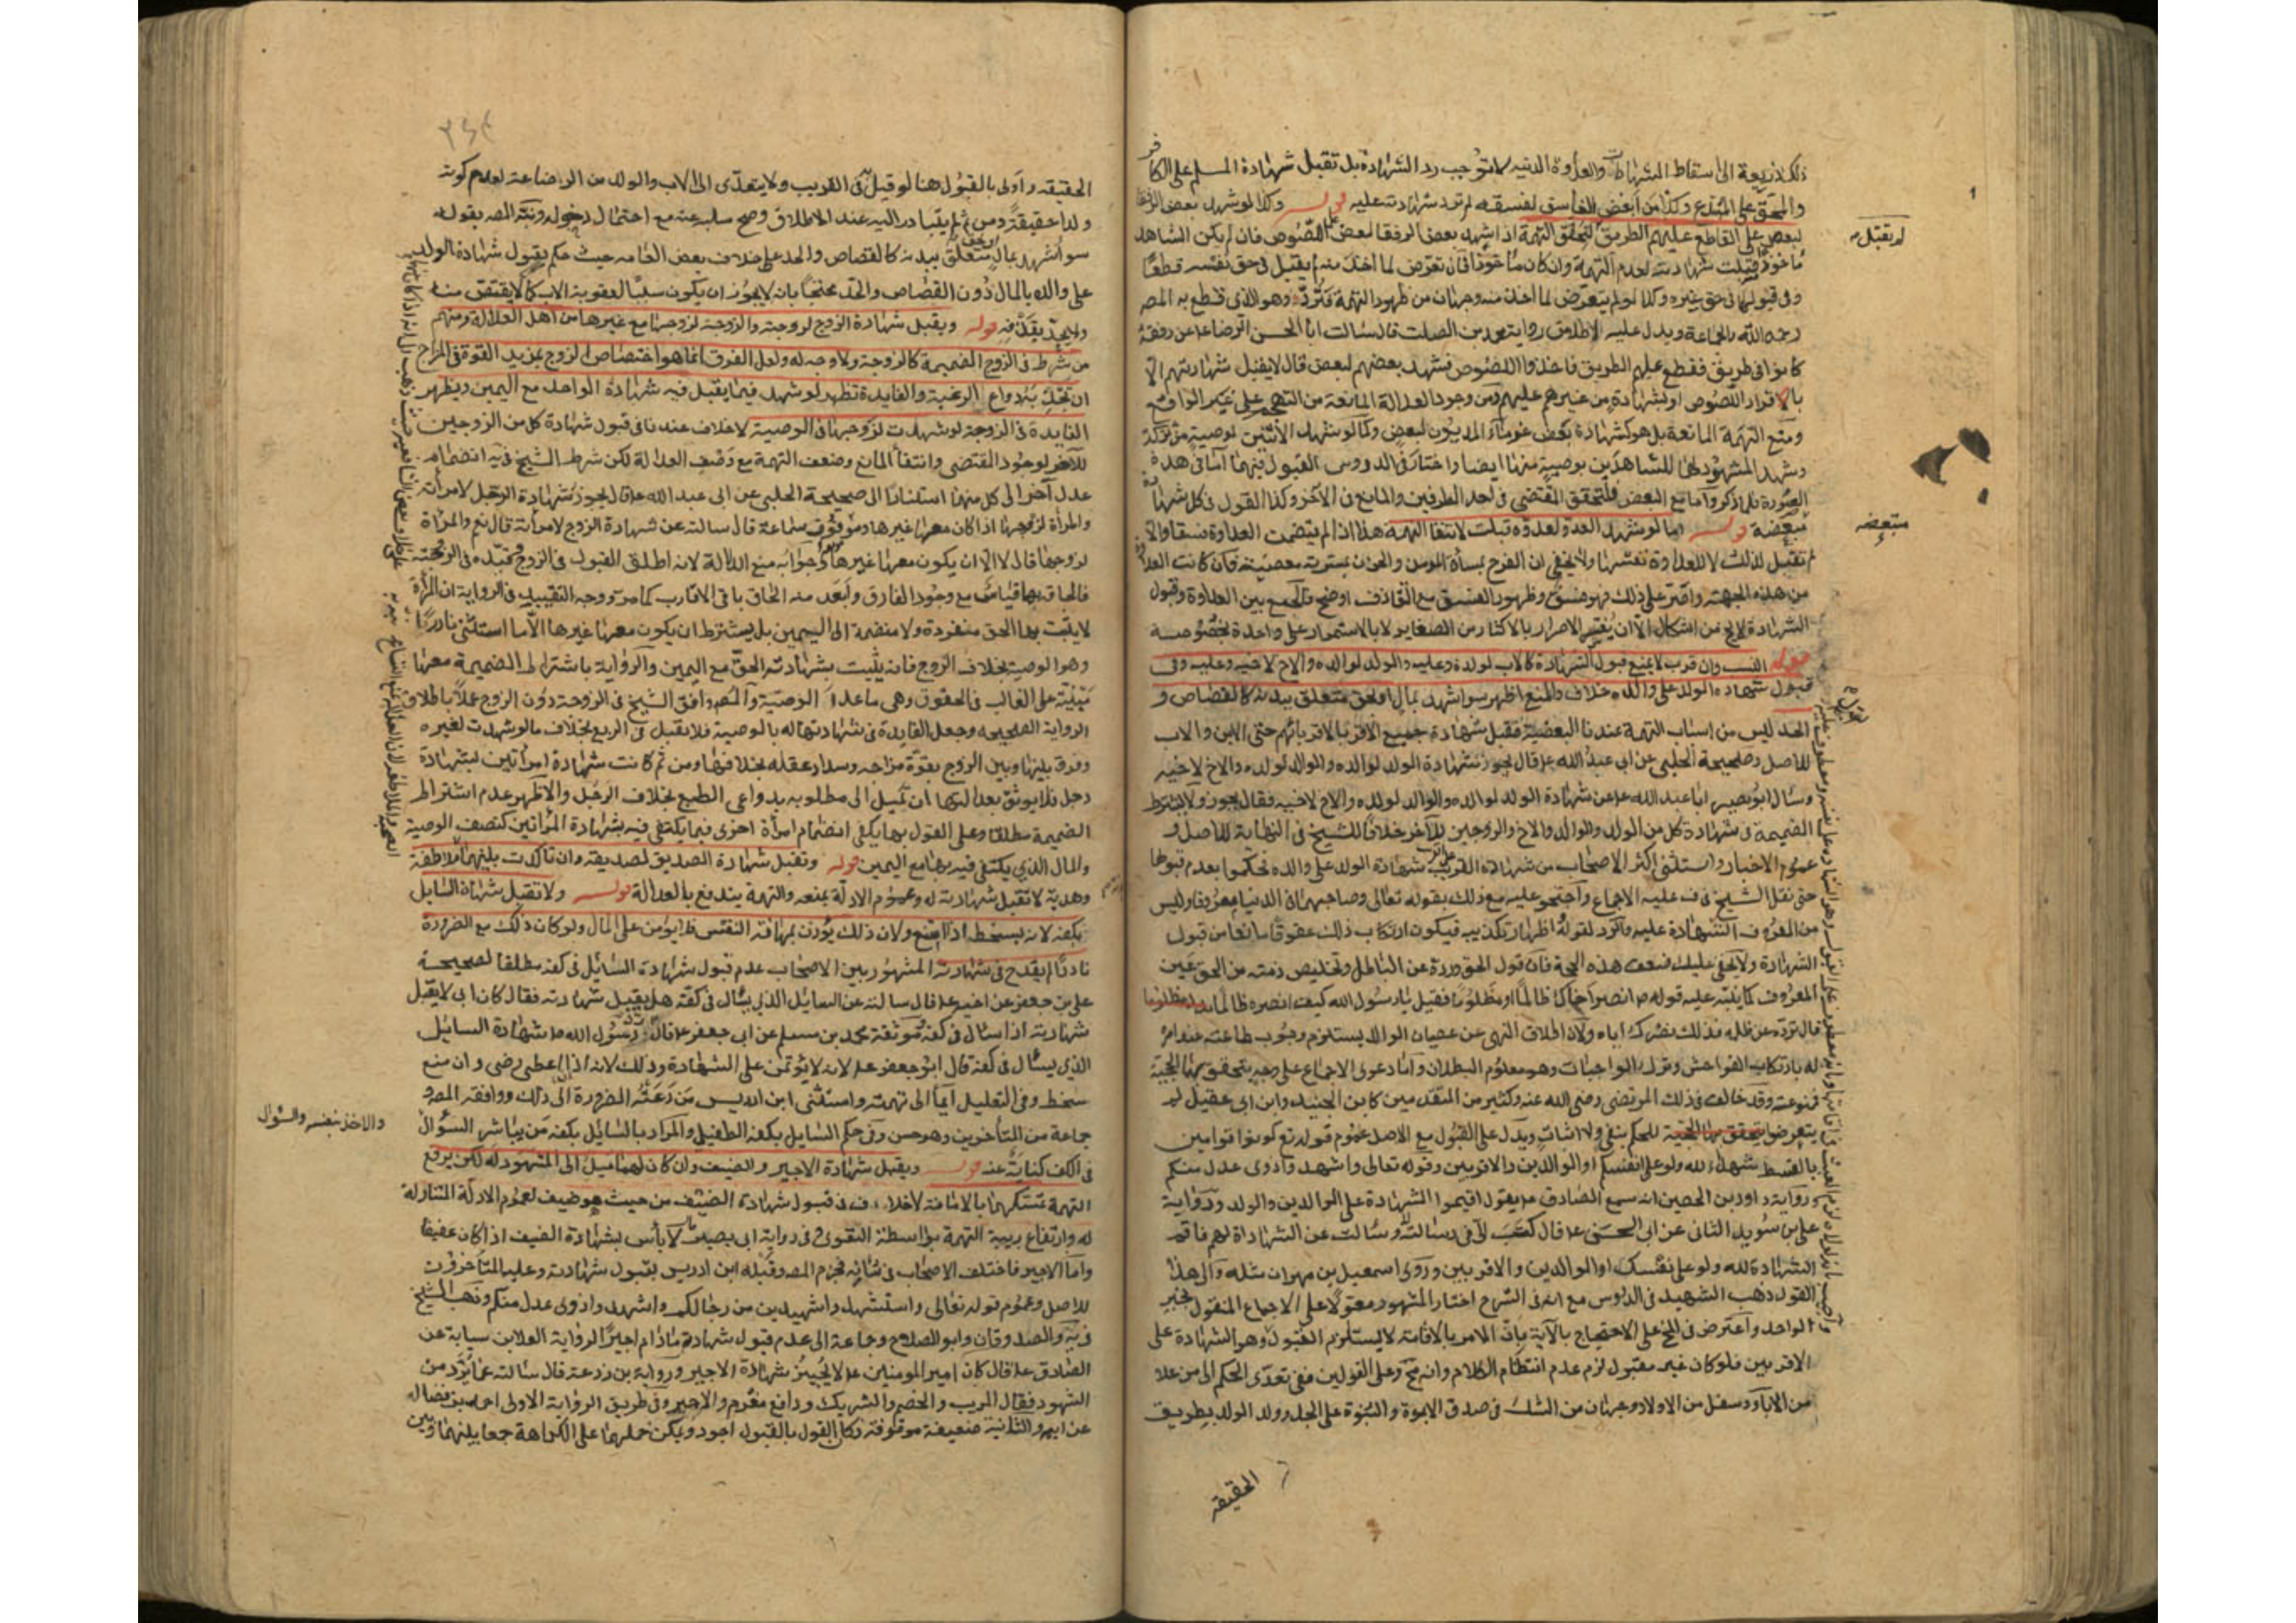 ذلك ذريعة الى اسقاط الشهادات والعداوة الدينيه لا توجب رد الشهادة بل تقبل شهادة المسلم على الكافر
والمحق على المبتدع وكذا من ابغض الفاسق لفسقه لم ترد شهادته عليه قوله وكذا لو شهد بعض الرفقا
لبعض على القاطع عليهم الطريق لتحقق التهمة اذا شهد بعض الرفقا لبعض على اللصوص فان لم يكن الشاهد
ماخوذا قبلت شهادته لعدم التهمة وان كان ماخوذا فان تعرض لما اخذ منه لم يقبل في حق نفسه قطعا
وفي قبولها في حق غيره وكذا لو لم يتعرض لما اخذ منه وجهان من ظهور التهمة فترد وهو الذي قطع به المصه
رحمه الله والجماعة ويدل عليه الاطلاق رواية محمد بن الصلت قال سالت ابا الحسن الرضا ع عن رفقة
كانوا في طريق فقطع عليهم الطريق فاخذوا اللصوص فشهد بعضهم لبعض قال لا يقبل شهادتهم الا
بالاقرار اللصوص او بشهادة من غيرهم عليهم ومن وجود العدالة المانعة من التهجم على غير الواقع
ومنع التهمة المانعة بل هو كشهادة بعض غرماء المديون لبعض وكما لو شهد الاثنين بوصية من تركة
وشهد المشهود لهما للشاهدين بوصية منها ايضا واختار في الدروس القبول فيهما اما في هذه
الصورة فلما ذكر واما مع البعض فلتحقق المقتضي في احد الطرفين والمانع في الآخر وكذا القول في كل شهادة
مبعضة قوله اما لو شهد العدو لعدوه قبلت لانتفا التهمة هذا اذا لم يتضمن العداوة فسقا والا
لم تقبل لذلك لا للعداوة نفسها ولا يخفى ان الفرح بمساة المومن والحزن بمسرته معصية فان كانت العداوة
من هذه الجهة واصر على ذلك فهو فسق وظهور الفسق مع التقاذف اوضح فالجمع بين العداوة وقبول
الشهادة لا يخ من اشكال الا ان يفسر الاصرار بالاكثار من الصغاير لا بالاستمرار على واحدة بخصوصه
قوله النسب وان قرب لا يمنع قبول الشهادة كالاب لولده وعليه والولد لوالده والاخ لاخيه وعليه وفي
قبول شهادة الولد على والده خلاف والمنع اظهر سوا شهد بمال او بحق متعلق ببدنه كالقصاص و
الحد ليس من اسباب التهمة عندنا البعضية فتقبل شهادة جميع الاقربا لاقربائهم حتى الابن والاب
للاصل وصحيحة الحلبي عن ابي عبد الله ع قال يجوز شهادة الولد لوالده والوالد لولده والاخ لاخيه
وسال ابو بصير ابا عبد الله ع عن شهادة الولد لوالده والوالد لولده والاخ لاخيه فقال يجوز ولا يشترط
الضميمة في شهادة كل من الولد والوالد والاخ والزوجين للآخر خلافا للشيخ في النهاية للاصل و
عموم الاخبار واستثنى اكثر الاصحاب من شهادة القريب على القريب شهادة الولد على والده فحكموا بعدم قبولها
حتى نقل الشيخ في ف عليه الاجماع واحتجوا عليه مع ذلك بقوله تعالى وصاحبهما في الدنيا معروفا وليس
من المعروف الشهادة عليه والرد لقوله واظهار تكذيبه فيكون ارتكاب ذلك عقوقا مانعا من قبول
الشهادة ولا يخفى عليك ضعف هذه الحجة فان قول الحق ورده عن الباطل وتخليص ذمته من الحق عين
المعروف كما ينبه عليه قوله ص انصر اخاك ظالما او مظلوما فقيل يا رسول الله كيف انصره ظالما
قال ترده عن ظلمه فذلك نصرك اياه ولان اطلاق النهي عن عصيان الوالد يستلزم وجوب طاعته عند امره
له بارتكاب الفواحش وترك الواجبات وهو معلوم البطلان واما دعوى الاجماع على وجه يتحقق بها الحجية
فممنوعة وقد خالف في ذلك المرتضى رضي الله عنه وكثير من المتقدمين كابن الجنيد وابن ابي عقيل لم
يتعرضوا للحكم بنفي ولا اثبات ويدل على القبول مع الاصل عموم قوله تع كونوا قوامين
بالقسط شهداء لله ولو على انفسكم او الوالدين والاقربين وقوله تعالى واشهدوا ذوي عدل منكم
ورواية داود بن الحصين انه سمع الصادق ع يقول اقيموا الشهادة على الوالدين والولد ورواية
علي بن سويد الثاني عن ابي الحسن ع قال كتب لي في رسالته وسالت عن الشهادة لهم فاقم
الشهادة لله ولو على نفسك او الوالدين والاقربين وروى اسمعيل بن مهران مثله والى هذا
القول ذهب الشهيد في الدروس مع انه في الشرح اختار المشهور معولا على الاجماع المنقول بخبر
الواحد واعترض في المخ على الاحتجاج بالآية بان الامر بالاقامة لا يستلزم القبول وهو الشهادة على
الاقربين فلو كان غير مقبول لزم عدم انتظام الكلام وانه مح وعلى القولين ففي تعدي الحكم الى من علا
من الاباء وسفل من الاولاد وجهان من الشك في صدق الابوة والبنوة على الجد وولد الولد بطريق
الحقيقة
لم يقبل
متبعضه
٢٤٤
الحقيقه واولى بالقبول هنا لو قيل به في القريب ولا يتعدى الى الاب والولد من الرضاعة لعدم كونه
ولدا حقيقة ومن ثم لم يتبادر اليه عند الاطلاق وصح سلبه عنه مع احتمال دخوله ونبه المصه بقوله
سوا شهد بمال او بحق متعلق ببدنه كالقصاص والحد على خلاف بعض العامه حيث حكم بقبول شهادة الولد
على والده بالمال دون القصاص والحد محتجا بانه لا يجوز ان يكون سلبا لعقوبة الاب كما لا يقتص منه
ولا يحد بقذفه قوله ويقبل شهادة الزوج لزوجته والزوجة لزوجها مع غيرها من اهل العدالة ومنهم
من شرط في الزوج الضميمة كالزوجة ولا وجه له ولعل الفرق انما هو اختصاص الزوج بمزيد القوة في المزاج
ان تجذبه دواعي الرغبة والفايدة تظهر لو شهد فيما يقبل فيه شهادة الواحد مع اليمين ويظهر
الفايدة في الزوجة لو شهدت لزوجها في الوصية لا خلاف عندنا في قبول شهادة كل من الزوجين
للآخر لوجود المقتضي وانتفاء المانع وضعف التهمة مع وصف العدالة لكن شرط الشيخ في يه انضمام
عدل آخر الى كل منهما استنادا الى صحيحة الحلبي عن ابي عبد الله ع قال يجوز شهادة الرجل لامراته
والمراة لزوجها اذا كان معها غيرها وموثوق سماعة قال سالته عن شهادة الزوج لامراته قال نعم والمراة
لزوجها قال لا الا ان يكون معها غيرها وجوابه منع الدلالة لانه اطلق القبول في الزوج وقيده في الزوجة
فالحاقه بها قياس مع وجود الفارق وابعد منه الحاق باقي الاقارب كما مر ووجه التقييد في الرواية ان المراة
لا يثبت بها الحق منفردة ولا منضمة الى اليمين بل يشترط ان يكون معها غيرها الا ما استثنى نادرا
وهو الوصية بخلاف الزوج فانه يثبت بشهادته الحق مع اليمين والرواية باشتراط الضميمة معها
مبنية على الغالب في الحقوق وهي ما عدا الوصية والمصه وافق الشيخ في الزوجة دون الزوج عملا باطلاق
الرواية الصحيحه وجعل الفايدة في شهادتها له بالوصية فلا يقبل في الربع بخلاف ما لو شهدت لغيره
وفرق بينها وبين الزوج بقوة مزاجه وسداد عقله بخلافها ومن ثم كانت شهادة امراتين بشهادة
رجل فلا يوثق بعدالتها ان تميل الى مطلوبه بدواعي الطبع بخلاف الرجل والاظهر عدم اشتراط
الضميمة مطلقا وعلى القول بها يكفي انضمام امراة اخرى فيما يكتفى فيه بشهادة المراتين كنصف الوصية
والمال الذي يكتفى فيه بها مع اليمين قوله وتقبل شهادة الصديق لصديقه وان تاكدت بينهما الملاطفة
وهدية لا تقبل شهادته له وعموم الادلة يمنعه والتهمة يندفع بالعدالة قوله ولا تقبل شهادة السايل
بكفه لانه يسخط اذا منع ولان ذلك يؤذن بمهانة النفس فلا يومن على المال ولو كان ذلك مع الضرورة
نادرا لم يقدح في شهادته المشهور بين الاصحاب عدم قبول شهادة السايل في كفه مطلقا لصحيحة
علي بن جعفر عن اخيه ع قال سالته عن السايل الذي يسال في كفه هل يقبل شهادته فقال كان ابي لا يقبل
شهادته اذا سال في كفه وموثقة محمد بن مسلم عن ابي جعفر ع قال رد رسول الله ص شهادة السايل
الذي يسأل في كفه قال ابو جعفر ع لانه لا يؤتمن على الشهادة وذلك لانه اذا اعطي رضي وان منع
سخط وفي التعليل ايماء الى تهمته واستثنى ابن ادريس من دعته الضرورة الى ذلك ووافقه المصه و
جماعة من المتأخرين وهو حسن وفي حكم السايل بكفه الطفيلي والمراد بالسايل بكفه من يباشر السؤال
والاخذ بنفسه والسؤال
في الكف كناية عنه قوله ويقبل شهادة الاجير والضيف وان كان لهما ميل الى المشهود له لكن يرفع
التهمة تمسكهما بالامانة لا خلاف في قبول شهادة الضيف من حيث هو ضيف لعموم الادلة المتناولة
له وارتفاع ريبة التهمة بواسطة التقوى وفي رواية ابي بصير لا بأس بشهادة الضيف اذا كان عفيفا
واما الاجير فاختلف الاصحاب في شأنه فجزم المصه وقبله ابن ادريس بقبول شهادته وعليه المتأخرون
للاصل وعموم قوله تعالى واستشهدوا شهيدين من رجالكم واشهدوا ذوي عدل منكم وذهب الشيخ
في يه والصدوقان وابو الصلاح وجماعة الى عدم قبول شهادته ما دام اجيرا لرواية العلا بن سيابة عن
الصادق ع قال كان امير المومنين ع لا يجيز شهادة الاجير ورواية بن زرعة قال سالته عما يرد من
الشهود فقال المريب والخصم والشريك ودافع مغرم والاجير وفي طريق الرواية الاولى احمد بن فضال
عن ابيه والثانية ضعيفة موقوفة فكان القول بالقبول اجود ويمكن حملهما على الكراهة جمعا بينهما وبين